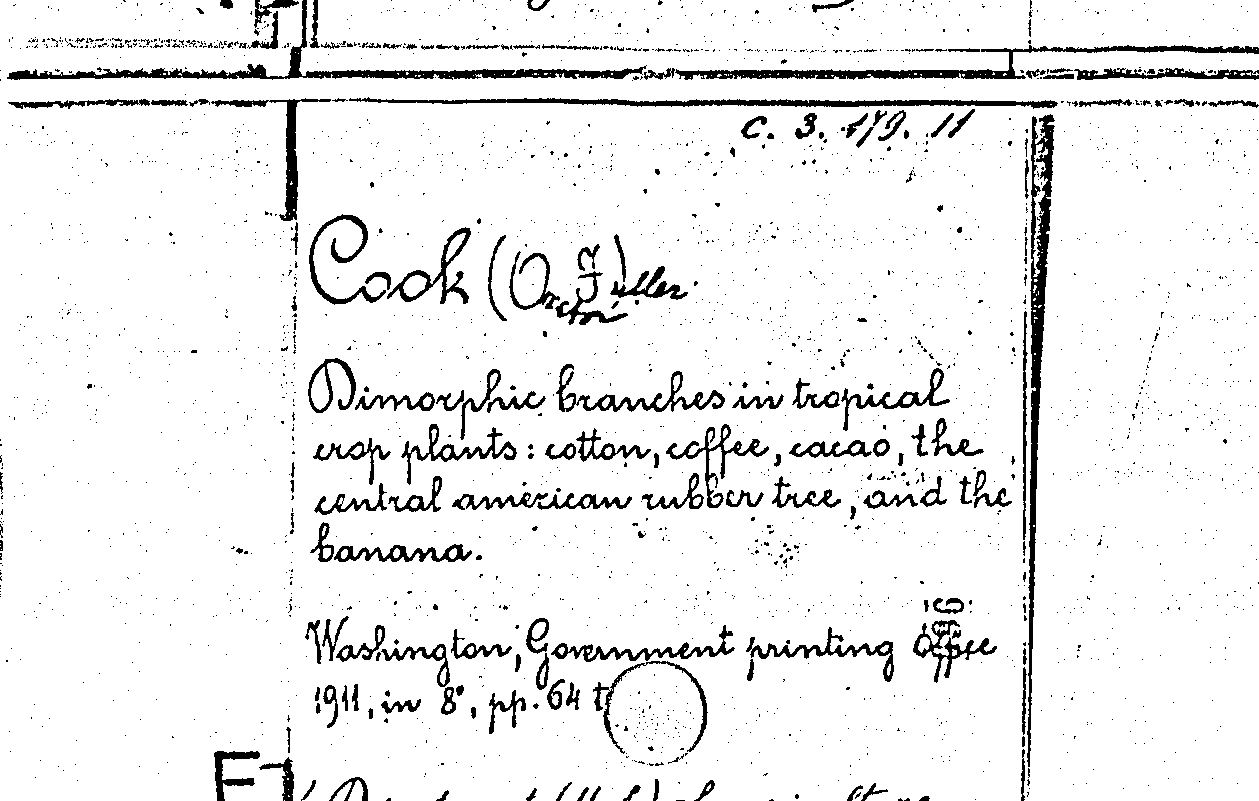 C. 3. 179. 11
Cook (O. F.)
Orator Fuller
Dimorphic branches in tropical
crop plants: cotton, coffee, cacao, the
central american rubber tree, and the
banana.
Washington, Government printing Office
1911, in 8°, pp. 64 t